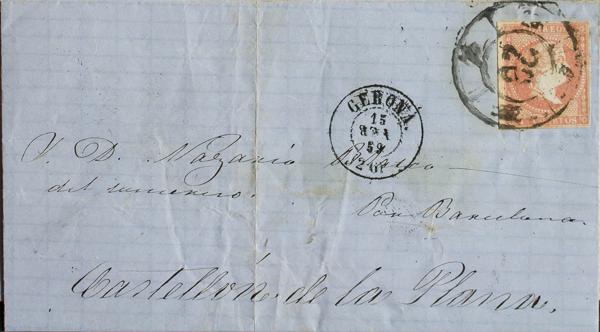 GERONA.
15
59
S. D. Nazario Blasco
del comercio.
Por Barcelona.
Castellón de la Plana.